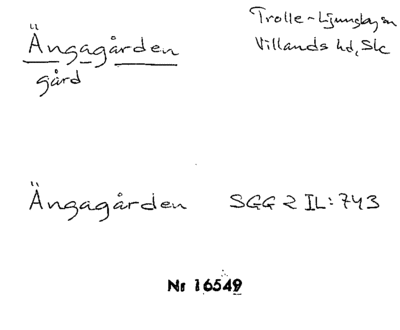 Ängagården
gård
Trolle-Ljungby sn
Villands hd, Skc
Ängagården SGG 2 IL: 743
Nr 16549